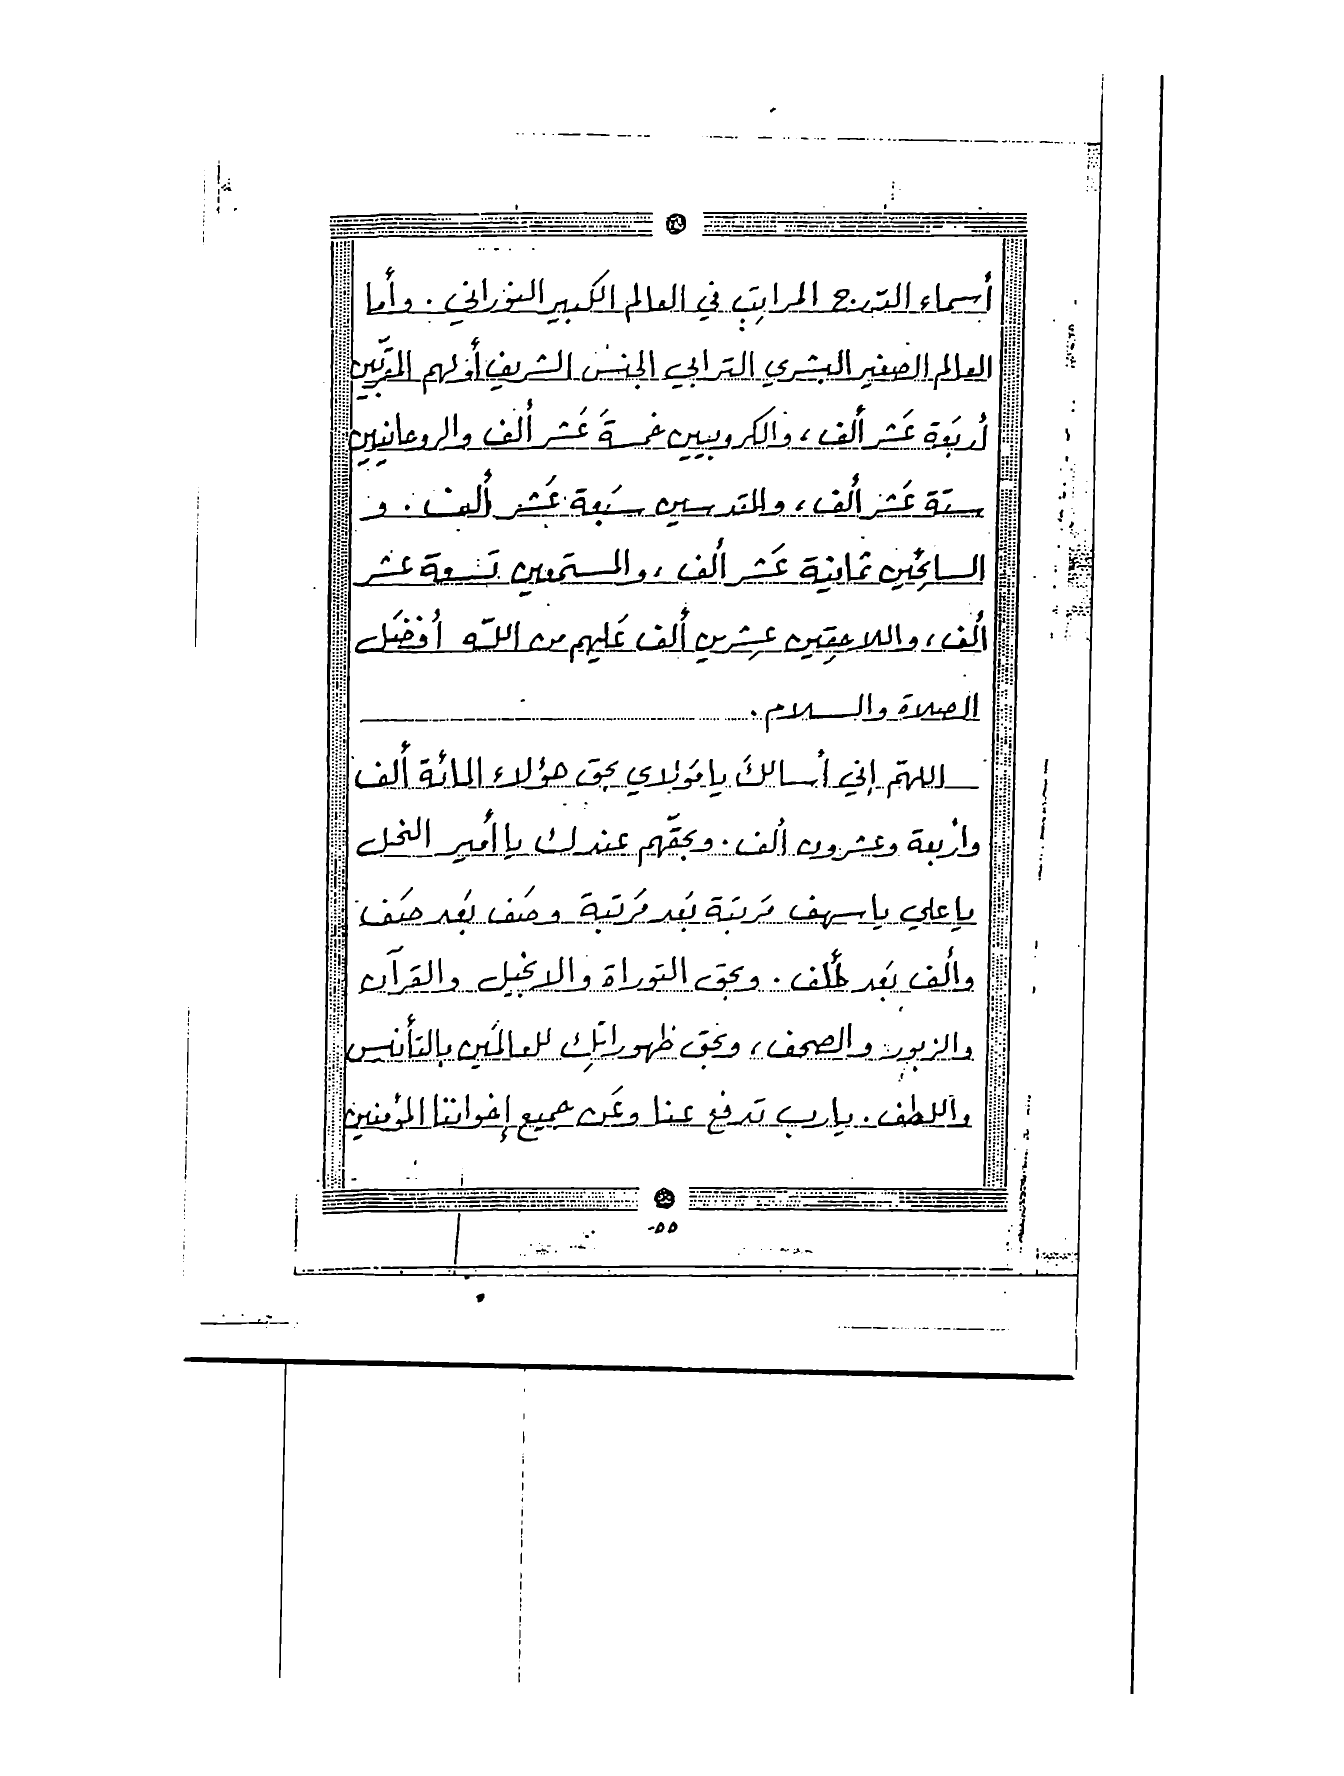 أسماء الدّرج المراتب في العالم الكبير النوراني . وأما
العالم الصغير البشري الترابي الجنس الشريف أولهم المقرّبين
أربَعة عَشر ألف ، والكروبيين خمسةَ عَشر ألف والروحانيين
ستة عَشر ألف ، والمقدسين سَبعة عَشر ألف . و
السائحين ثمانية عَشر ألف ، والمستمعين تسعة عشر
ألف ، واللاحقين عشرين ألف عَليهم من اللّه أفضَل
الصلاة والسلام .
اللهمّ إني أسالكَ يا مَولاي بحق هؤلاء المائة ألف
وأربعة وعشرون ألف . وبحقّهم عندك يا أمير النحل
يا علي يا مَرتبَة بَعد مَرتبة وصَنف بَعد صَنف
وألف بَعد ألف . وبحق التوراة والانجيل والقرآن
والزبور والصحف ، وبحق ظهوراتِك للعالمَين بالتأنيس
واللطف . يارب تدفع عنا وعَن جميع إخواننا المؤمنين
٥٥-